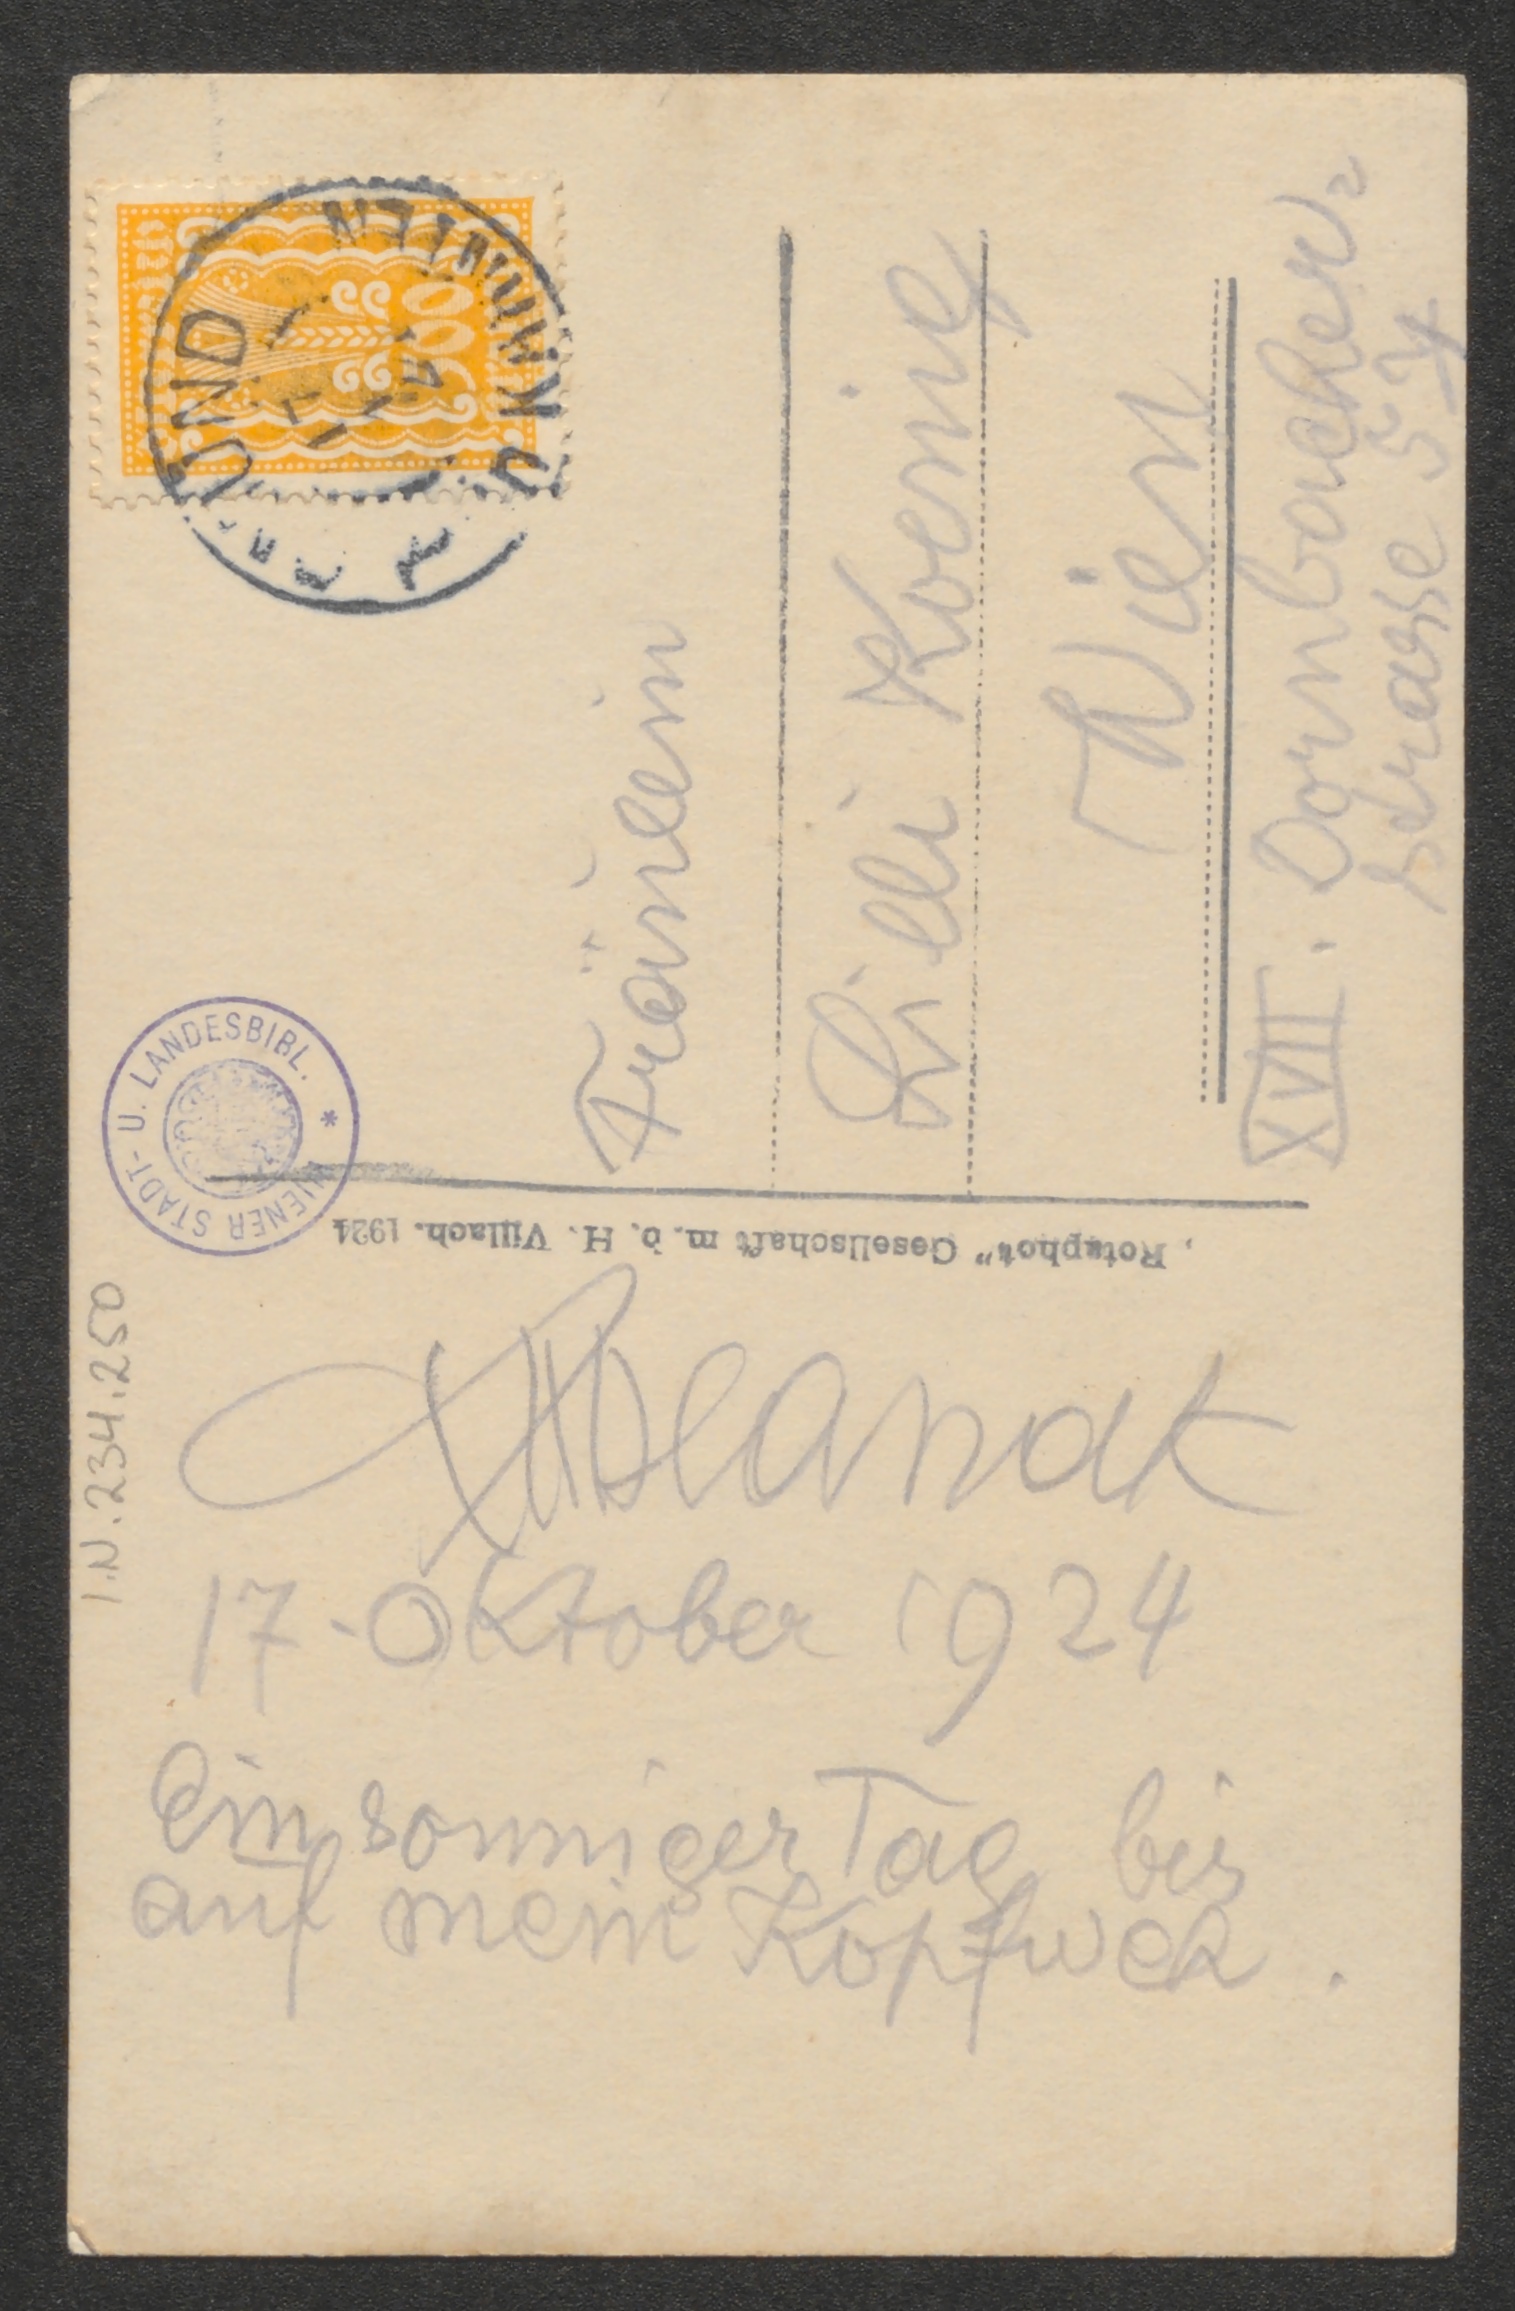 Fräulein
Lilli Koenig
Wien
XVII. Dornbacher
strasse 54
WIENER STADT- U. LANDESBIBL. *
„Rotaphot" Gesellschaft m. b. H. Villach. 1924
I.N.234.250
17-Oktober 1924
Ein sonniger Tag bis
auf mein Kopfweh.